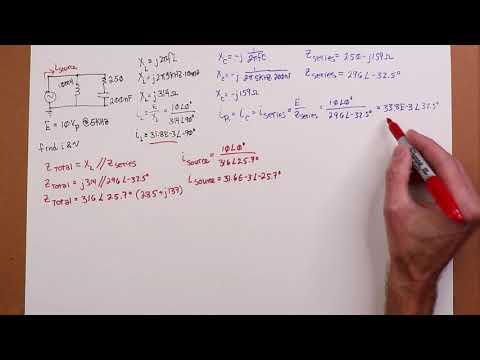 i source
10mH
250
200nF
E = 10Vp @ 5KHZ
find i & v
X L = j2πfL
X L = j2π5KHZ·10mH
X L = j314Ω
i L = E / X L = 10∠0° / 314∠90°
i L = 31.8E-3∠-90°
X C = -j 1 / 2πfC
X C = -j 1 / 2π5KHZ·200nF
X C = -j159Ω
i R = i C = i series = E / Z series = 10∠0° / 296∠-32.5° = 33.8E-3∠32.5°
Z series = 250-j159Ω
Z series = 296∠-32.5°
Z Total = X L // Z series
Z Total = j314 // 296∠-32.5°
Z Total = 316∠25.7° (285+j137)
i source = 10∠0° / 316∠25.7°
i source = 31.6E-3∠-25.7°